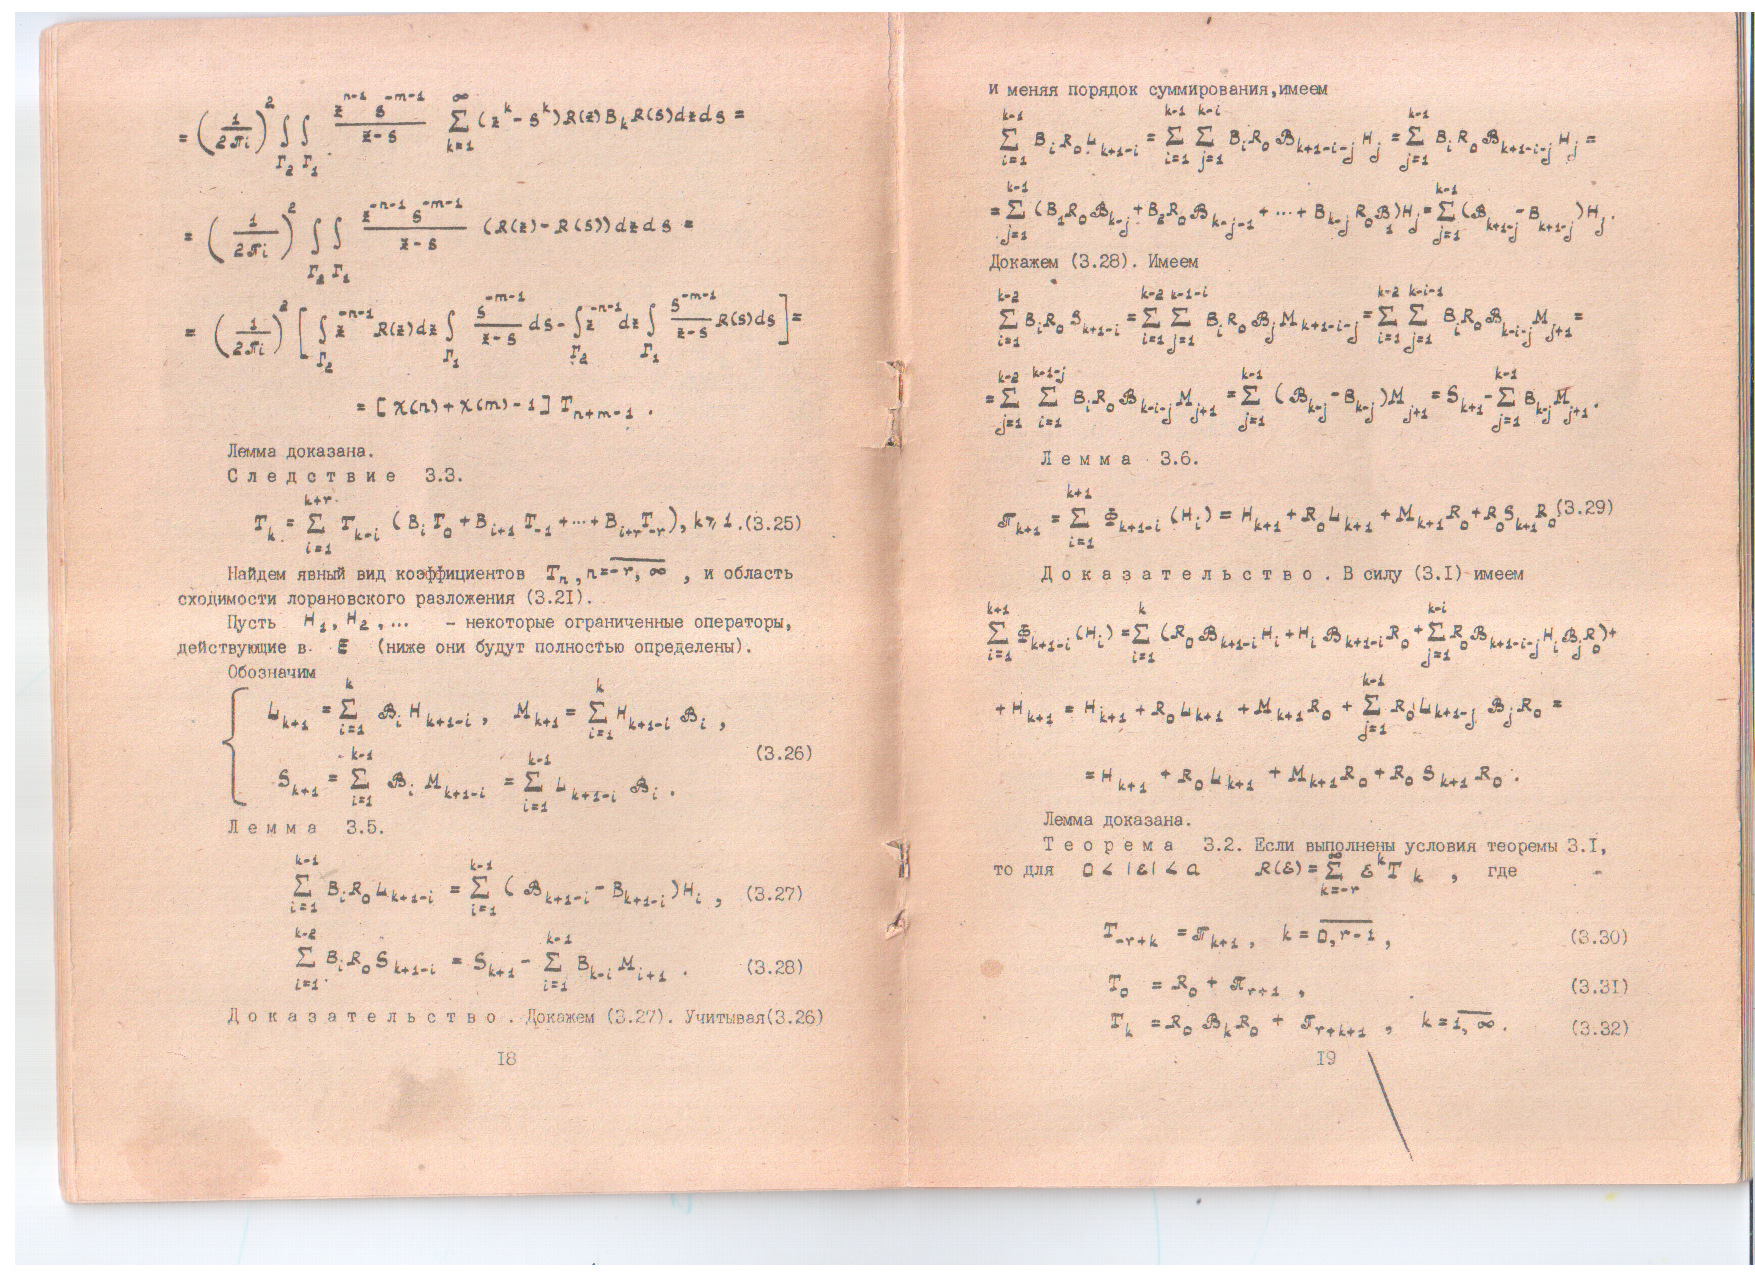 = (1/2πi)² ∫_{Γ₂} ∫_{Γ₁} (z^{-n-1} s^{-m-1})/(z-s) Σ_{k=1}^{∞} (z^k - s^k) R(z) B_k R(s) dz ds =
= (1/2πi)² ∫_{Γ₂} ∫_{Γ₁} (z^{-n-1} s^{-m-1})/(z-s) (R(z) - R(s)) dz ds =
= (1/2πi)² [ ∫_{Γ₂} z^{-n-1} R(z) dz ∫_{Γ₁} s^{-m-1}/(z-s) ds - ∫_{Γ₂} z^{-n-1} dz ∫_{Γ₁} s^{-m-1}/(z-s) R(s) ds ] =
= [χ(n) + χ(m) - 1] T_{n+m-1} .
Лемма доказана.
Следствие 3.3.
T_k = Σ_{i=1}^{k+r} T_{k-i} (B_i T_0 + B_{i+1} T_{-1} + ... + B_{i+r} T_{-r}), k ⩾ 1. (3.25)
Найдем явный вид коэффициентов T_n, n = \overline{-r, ∞} , и область
сходимости лорановского разложения (3.21).
Пусть H_1, H_2, ... - некоторые ограниченные операторы,
действующие в E (ниже они будут полностью определены).
Обозначим
L_{k+1} = Σ_{i=1}^{k} ℬ_i H_{k+1-i} , M_{k+1} = Σ_{i=1}^{k} H_{k+1-i} ℬ_i ,
(3.26)
S_{k+1} = Σ_{i=1}^{k-1} ℬ_i M_{k+1-i} = Σ_{i=1}^{k-1} L_{k+1-i} ℬ_i .
Лемма 3.5.
Σ_{i=1}^{k-1} B_i R_0 L_{k+1-i} = Σ_{i=1}^{k-1} (ℬ_{k+1-i} - B_{k+1-i}) H_i , (3.27)
Σ_{i=1}^{k-2} B_i R_0 S_{k+1-i} = S_{k+1} - Σ_{i=1}^{k-1} B_{k-i} M_{i+1} . (3.28)
Доказательство. Докажем (3.27). Учитывая (3.26)
18
и меняя порядок суммирования, имеем
Σ_{i=1}^{k-1} B_i R_0 L_{k+1-i} = Σ_{i=1}^{k-1} Σ_{j=1}^{k-i} B_i R_0 ℬ_{k+1-i-j} H_j = Σ_{j=1}^{k-1} B_i R_0 ℬ_{k+1-i-j} H_j =
= Σ_{j=1}^{k-1} (B_1 R_0 ℬ_{k-j} + B_2 R_0 ℬ_{k-j-1} + ... + B_{k-j} R_0 ℬ_1) H_j = Σ_{j=1}^{k-1} (ℬ_{k+1-j} - B_{k+1-j}) H_j .
Докажем (3.28). Имеем
Σ_{i=1}^{k-2} B_i R_0 S_{k+1-i} = Σ_{i=1}^{k-2} Σ_{j=1}^{k-1-i} B_i R_0 ℬ_j M_{k+1-i-j} = Σ_{i=1}^{k-2} Σ_{j=1}^{k-i-1} B_i R_0 ℬ_{k-i-j} M_{j+1} =
= Σ_{j=1}^{k-2} Σ_{i=1}^{k-1-j} B_i R_0 ℬ_{k-i-j} M_{j+1} = Σ_{j=1}^{k-1} (ℬ_{k-j} - B_{k-j}) M_{j+1} = S_{k+1} - Σ_{j=1}^{k-1} B_{k-j} M_{j+1} .
Лемма 3.6.
π_{k+1} = Σ_{i=1}^{k+1} Φ_{k+1-i} (H_i) = H_{k+1} + R_0 L_{k+1} + M_{k+1} R_0 + R_0 S_{k+1} R_0 (3.29)
Доказательство. В силу (3.1) имеем
Σ_{i=1}^{k+1} Φ_{k+1-i} (H_i) = Σ_{i=1}^{k} (R_0 ℬ_{k+1-i} H_i + H_i ℬ_{k+1-i} R_0 + Σ_{j=1}^{k-i} R_0 ℬ_{k+1-i-j} H_i ℬ_j R_0) +
+ H_{k+1} = H_{k+1} + R_0 L_{k+1} + M_{k+1} R_0 + Σ_{j=1}^{k-1} R_0 L_{k+1-j} ℬ_j R_0 =
= H_{k+1} + R_0 L_{k+1} + M_{k+1} R_0 + R_0 S_{k+1} R_0 .
Лемма доказана.
Теорема 3.2. Если выполнены условия теоремы 3.1,
то для 0 < |ε| < a R(ε) = Σ_{k=-r}^{∞} ε^k T_k , где
T_{-r+k} = π_{k+1} , k = \overline{0, r-1} , (3.30)
T_0 = R_0 + π_{r+1} , (3.31)
T_k = R_0 ℬ_k R_0 + π_{r+k+1} , k = \overline{1, ∞} . (3.32)
19